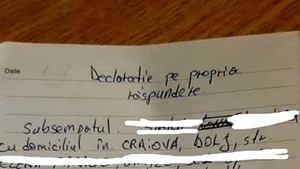 Date
Declaratie pe propria
răspundere
Subsemnatul
cu domiciliul în CRAIOVA, DOLJ, str.